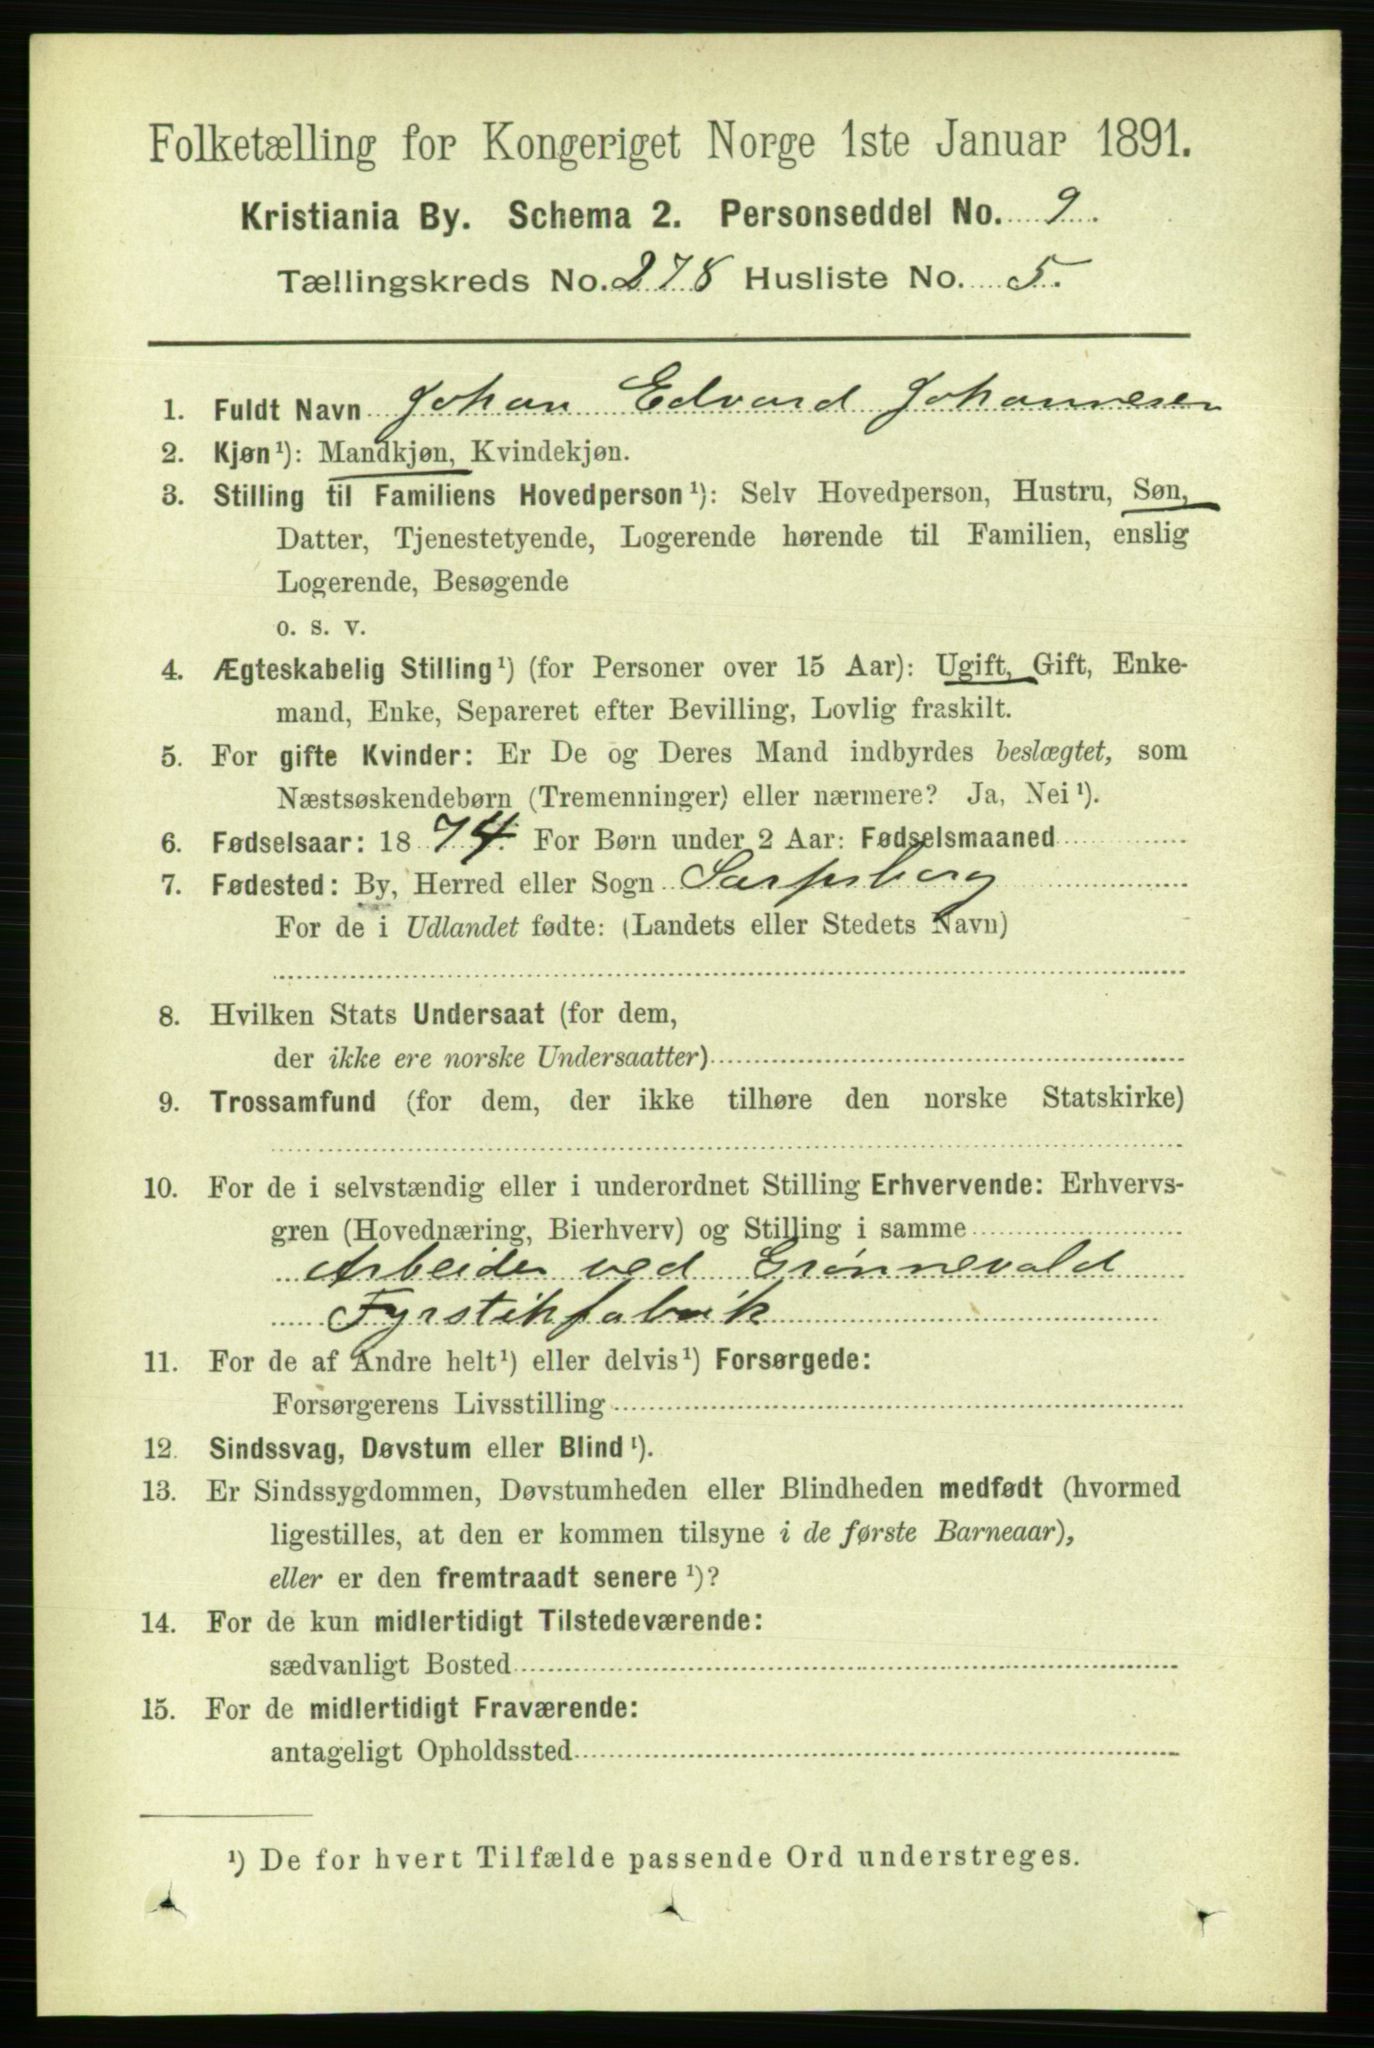 Folketælling for Kongeriget Norge 1ste Januar 1891.
Kristiania By. Schema 2. Personseddel No. 9.
Tællingskreds No. 278 Husliste No. 5.
1. Fuldt Navn Johan Edvard Johannesen
2. Kjøn¹): Mandkjøn, Kvindekjøn.
3. Stilling til Familiens Hovedperson¹): Selv Hovedperson, Hustru, Søn,
Datter, Tjenestetyende, Logerende hørende til Familien, enslig
Logerende, Besøgende
o. s. v.
4. Ægteskabelig Stilling¹) (for Personer over 15 Aar): Ugift, Gift, Enke-
mand, Enke, Separeret efter Bevilling, Lovlig fraskilt.
5. For gifte Kvinder: Er De og Deres Mand indbyrdes beslægtet, som
Næstsøskendebørn (Tremenninger) eller nærmere? Ja, Nei¹).
6. Fødselsaar: 1874. For Børn under 2 Aar: Fødselsmaaned
7. Fødested: By, Herred eller Sogn Sarpsborg
For de i Udlandet fødte: (Landets eller Stedets Navn)
8. Hvilken Stats Undersaat (for dem,
der ikke ere norske Undersaatter)
9. Trossamfund (for dem, der ikke tilhøre den norske Statskirke)
10. For de i selvstændig eller i underordnet Stilling Erhvervende: Erhvervs-
gren (Hovednæring, Bierhverv) og Stilling i samme
Arbeider ved Grønnevald
Fyrstikfabrik
11. For de af Andre helt¹) eller delvis¹) Forsørgede:
Forsørgerens Livsstilling
12. Sindssvag, Døvstum eller Blind¹).
13. Er Sindssygdommen, Døvstumheden eller Blindheden medfødt (hvormed
ligestilles, at den er kommen tilsyne i de første Barneaar),
eller er den fremtraadt senere¹)?
14. For de kun midlertidigt Tilstedeværende:
sædvanligt Bosted
15. For de midlertidigt Fraværende:
antageligt Opholdssted
¹) De for hvert Tilfælde passende Ord understreges.